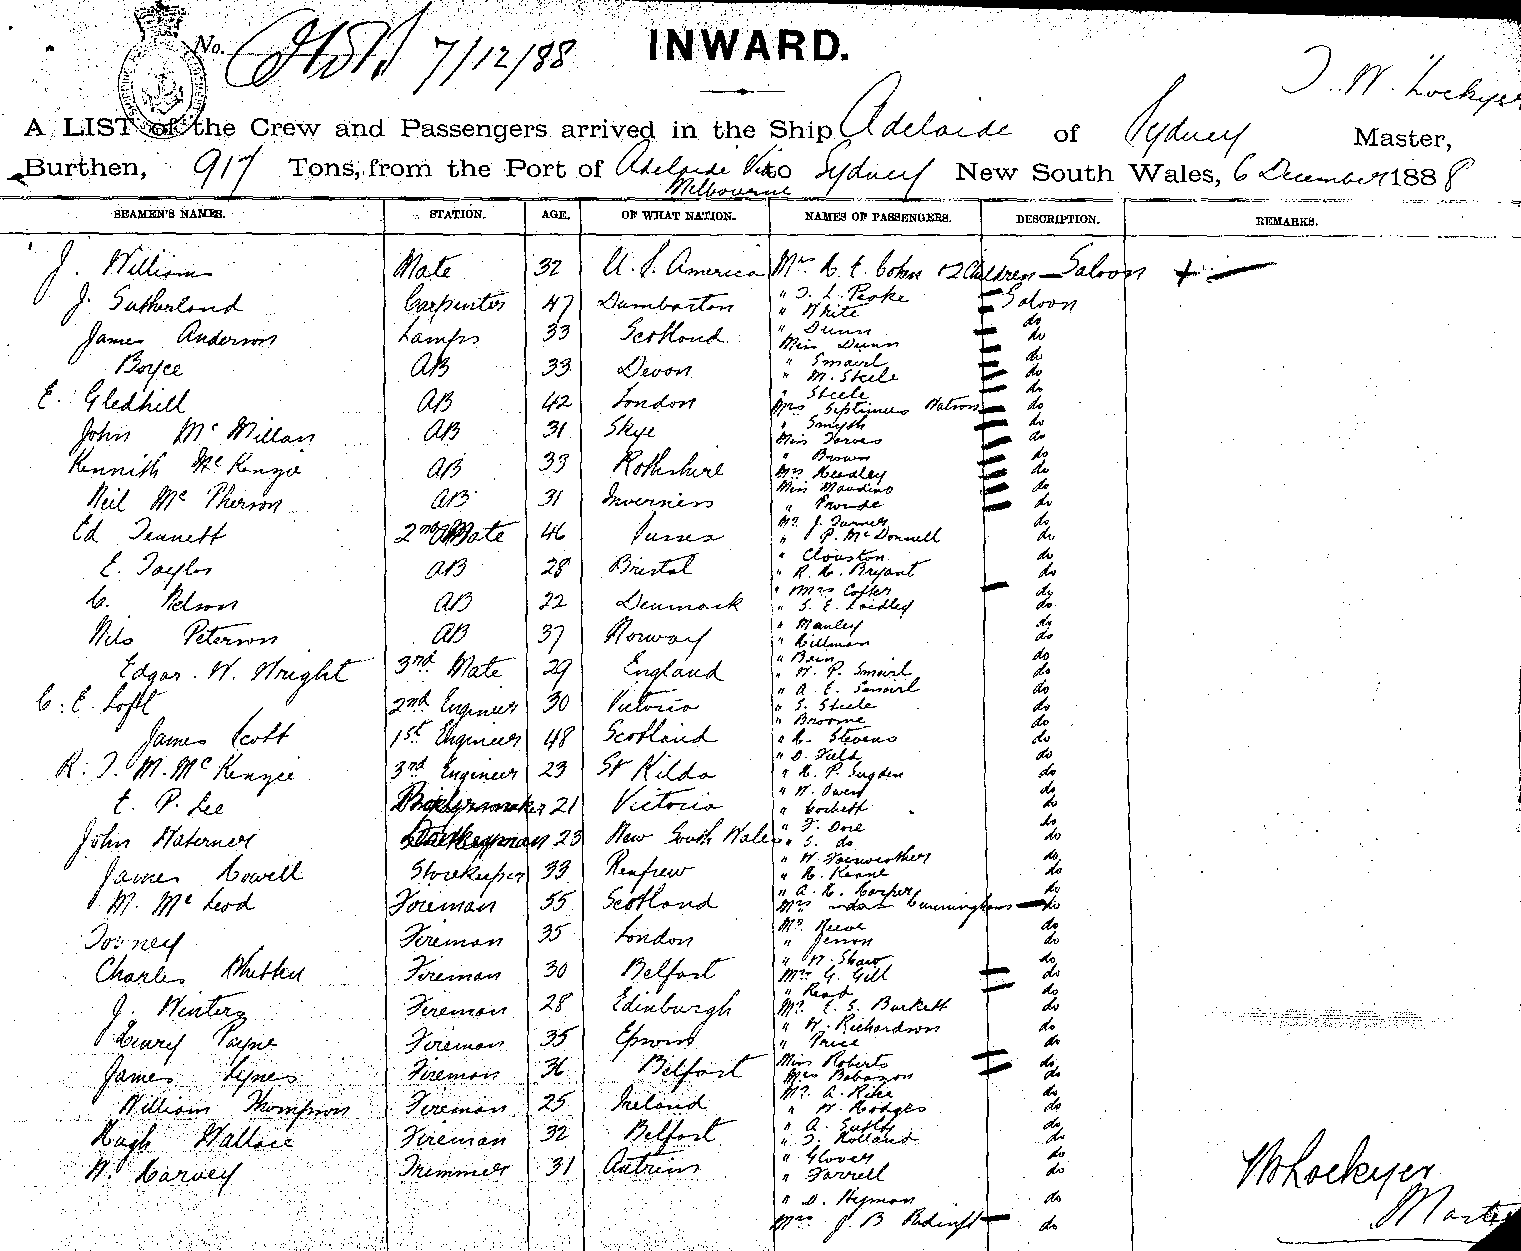 No. 7/12/88
INWARD.
T. W. Lockyer
A LIST of the Crew and Passengers arrived in the Ship Adelaide of Sydney Master,
Burthen, 917 Tons, from the Port of Adelaide Via to Sydney New South Wales, 6 December 1888
Melbourne
SEAMEN'S NAMES. STATION. AGE. OF WHAT NATION. NAMES OF PASSENGERS. DESCRIPTION. REMARKS.
J. Williams Mate 32 U. S. America Cohn 2 Children Saloon
J. Sutherland Carpenter 47 Dumbarton Saloon
" White do
James Anderson Lamps 33 Scotland " Dunn do
Miss Dunn do
Boyce AB 33 Devon " Smairl do
" M. Steele do
" Steele do
E. Gledhill AB 42 London Mrs Septimus Watson do
" Smyth do
John McMillan AB 31 Skye Miss do
" Brown do
Kennith McKenzie AB 33 Rothshire Mrs Headley do
Miss do
Neil McPherson AB 31 Inverness " do
Mr. J. Turner do
Ed Tennett 2nd Mate 46 " P. McDonnell do
" Clouston do
E. Taylor AB 28 Bristol " Bryant do
" Mrs do
C. Nelson AB 22 Denmark " S. E. Laidley do
" Manley do
Nils Peterson AB 37 Norway " Hillman do
" do
Edgar. W. Wright 3rd Mate 29 England " W. P. Smairl do
" A. E. Smairl do
C. E. Loft 2nd Engineer 30 Victoria " S. Steele do
" Broome do
James Scott 1st Engineer 48 Scotland " H. Stevens do
" D. Field do
R. T. M. McKenzie 3rd Engineer 23 St Kilda " H. P. Sugden do
" W. Owen do
E. P. Lee 21 Victoria " Corbett do
" T. Dore do
John 23 New South Wales " S. do do
" W. Fairweather do
James Howell Storekeeper 33 Renfrew " H. Keane do
" A. H. Harper do
M. McLeod Foreman 55 Scotland Mrs Cunningham do
Mr. Reeve do
Fireman 35 London " do
" W. Shaw do
Charles Fireman 30 Belfast Mrs G. Gill do
" do
J. Winters Fireman 28 Edinburgh Mr. E. S. Burkett do
" W. Richardson do
Henry Payne Fireman 35 Epsom " Price do
Miss Roberts do
James Lynes Fireman 36 Belfast Mrs do
Mr. A. do
William Thompson Fireman 25 Ireland " W. Hodges do
" A. do
Hugh Wallace Fireman 32 Belfast " T. Holland do
" Glover do
W. Harvey Trimmer 31 Antrim " Farrell do
" D. Hyman do
Mrs J B do
W Lockyer
Master